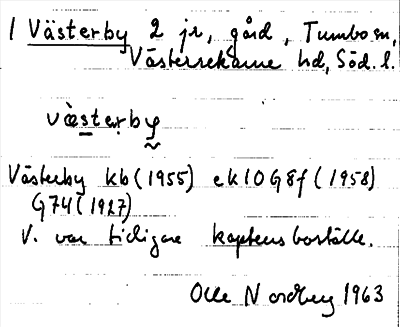 1 Västerby 2 jr, gård, Tumbo sn,
Västerrekarne hd, Söd. l.
västerby
Västerby kb (1955) ek 10G8f (1958)
G74 (1927)
V. var tidigare kaptensboställe.
Olle Nordberg 1963